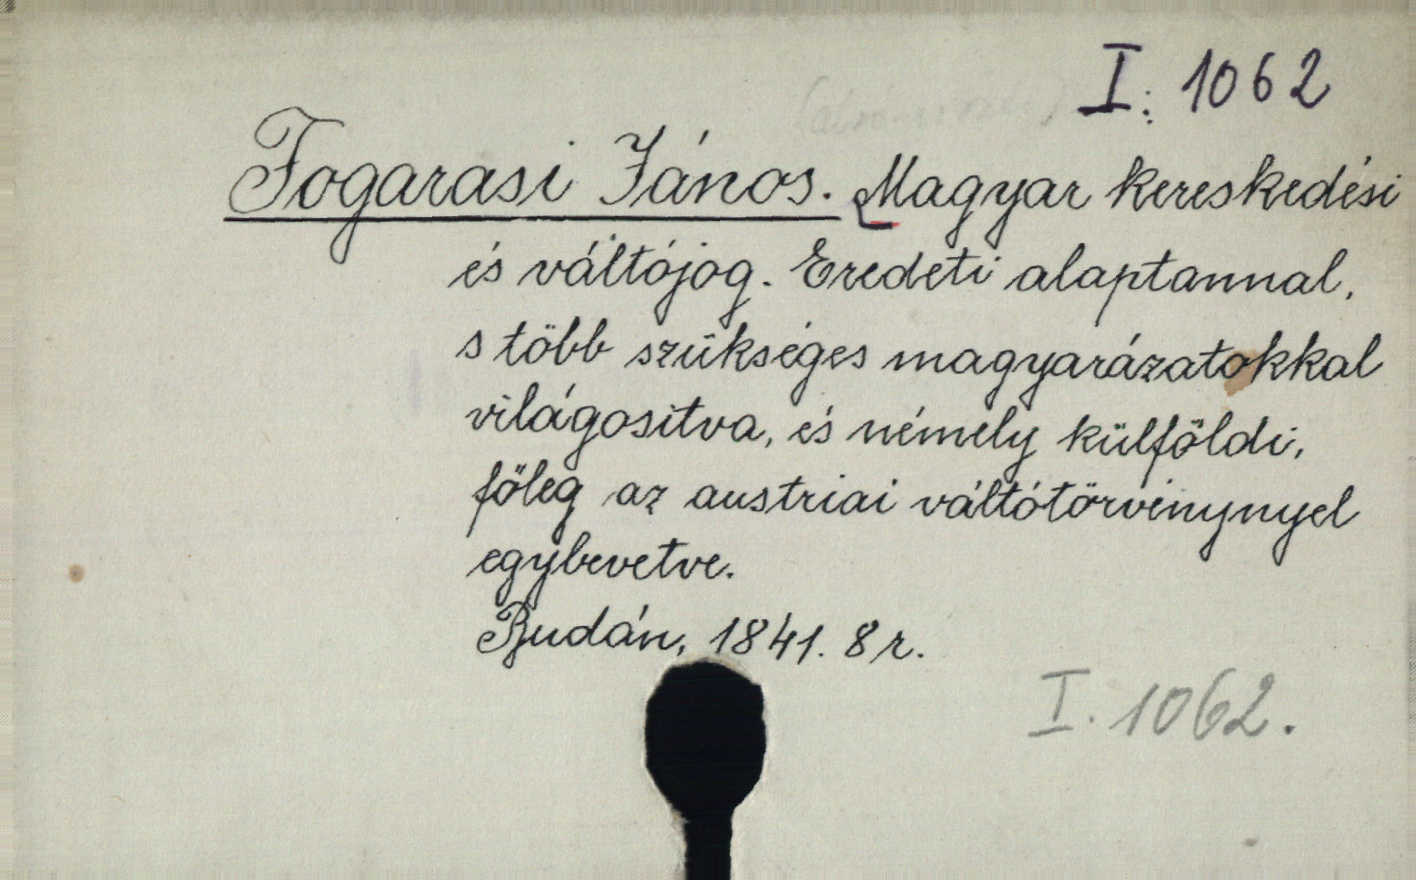 I. 1062
Fogarasi János. Magyar kereskedési
és váltójog. Eredeti alaptannal,
s több szükséges magyarázatokkal
világositva, és némely külföldi,
főleg az austriai váltótörvénynyel
egybevetve.
Budán, 1841. 8 r.
I. 1062.